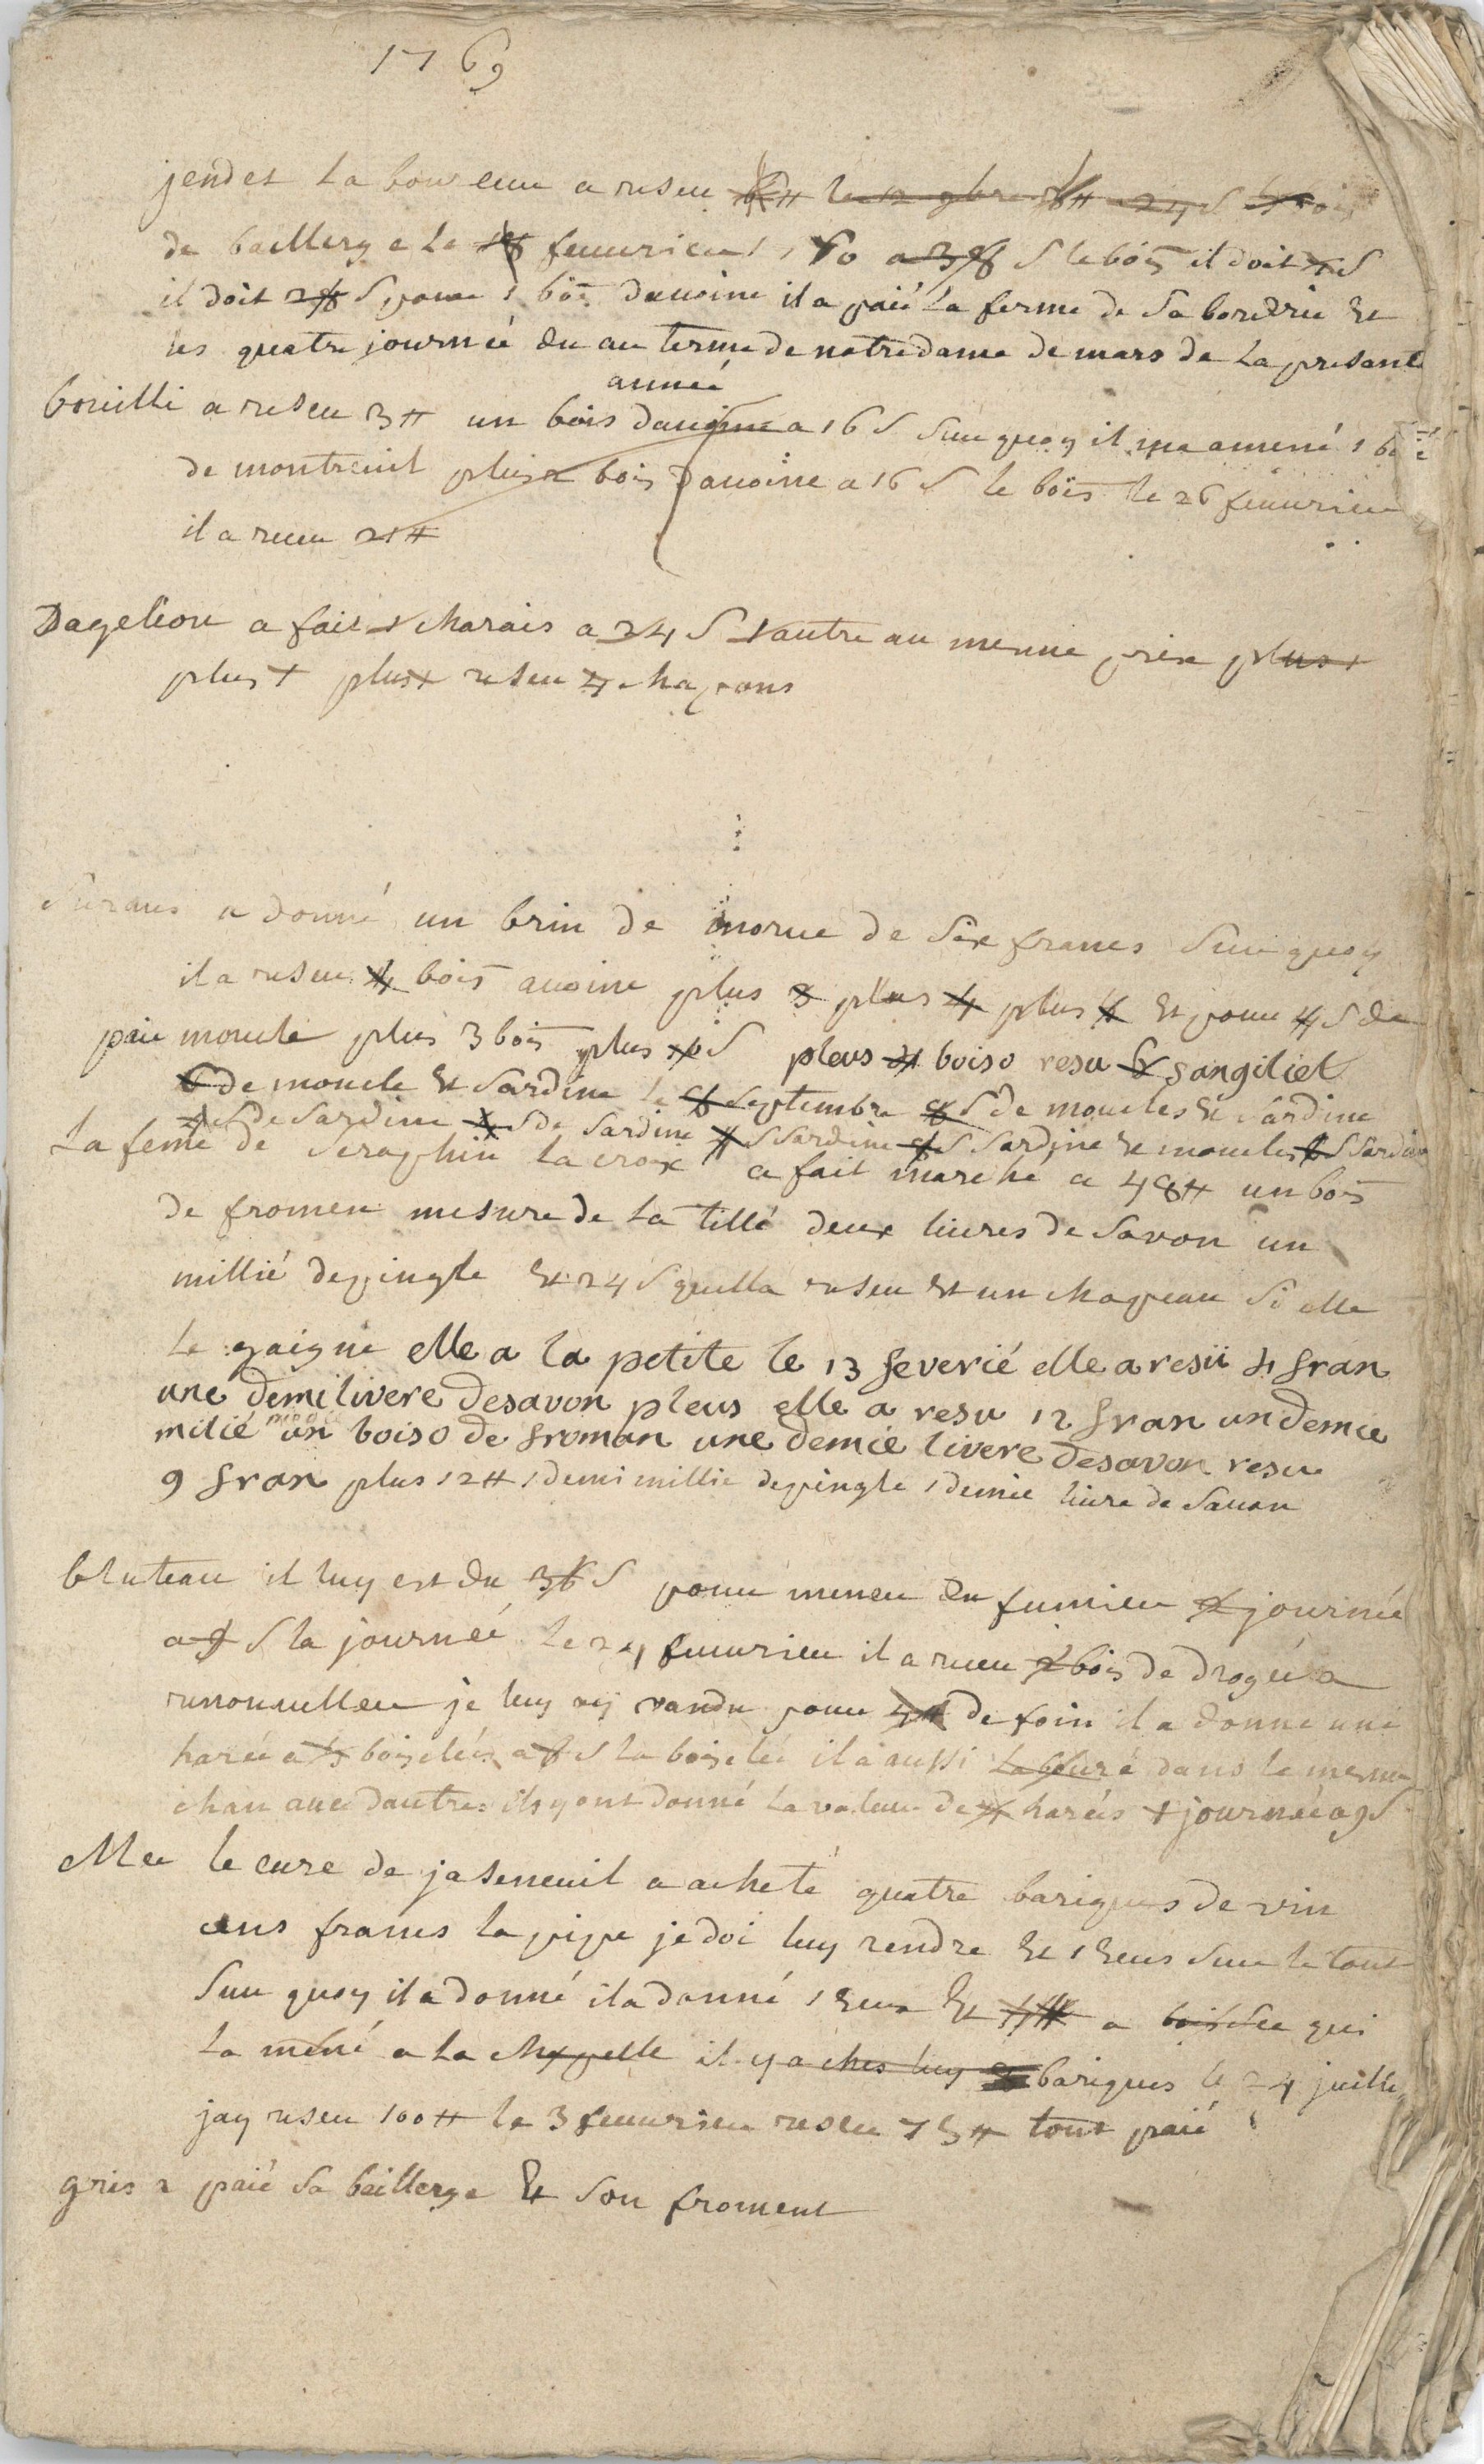 1769
jendet la bour a reseu le 12 9bre 24 s bois
de baillerge le feuurieu a s le bois il doit s
il doit s pour 1 bois dauoine il a paié la ferme de sa borderie et
les quatre journeé du au terme de notre dame de mars de la presante
anneé
bouilli a reseu 3 ₶ un bois dauoine a 16 s suu quoy il ma amené 1
de montreuil plus 2 bois dauoine a 16 s le bois le 26 feuurieu
il a receu 21 ₶
Dagelion a fait 1 charais a 24 s 1 autre au meme prix plus 1
plus 1 plus 1 reseu 4 chapons
a donné un brin de morue de six francs suu quoy
il a reseu 4 bois auoine plus 3 plus 4 plus 4 et pour 4 s de
moucle plus 3 bois plus s pleus 4 boiso resu sangiliet
6 de moucle et sardine le 8 septembre 8 s de moucles et sardine
s de sardine s de sardine s sardine s sardine et moucles s sardine
La feme de seraphin la croix a fait marché a 48 ₶ un bois
de fromen mesure de la tillé deux liures de savon un
millié depingle et 24 s quella reseu et un chapeau si elle
le gaigne elle a la petite le 13 feverié elle a resu 4 fran
une demi livere desavon pleus elle a resu 12 fran un demie
milié un boiso de froman une demie livere desavon resu
9 fran plus 12 ₶ 1 demi millie depingle 1 demie liure de sauon
bluteau il luy est du 36 s pour meneu du fumieu 2 journée
a 9 s la journeé le 24 feuurieu il a receu 2 bois de drogeé a
renouuelleu je luy ay vandu pour de foin il a donne une
hareé a boiseleé a s la boiseleé il a aussi labouré dans le mesme
chan auec dautres ils y ont donné la valeur de hareés 1 journeé a 9 s
Mee le cure de jaseneuil a acheté quatre bariques de vin
cens francs la pipe je doi luy rendre et 1 ecus suu le tout
suu quoy il a donné il a donné 1 ecus et a qui
la mené a la chapelle il y a ches luy bariques le 24 juillet
jay reseu 100 ₶ le 3 feuurieu reseu 75 ₶ tout paié
gris a paié sa baillerge et son froment